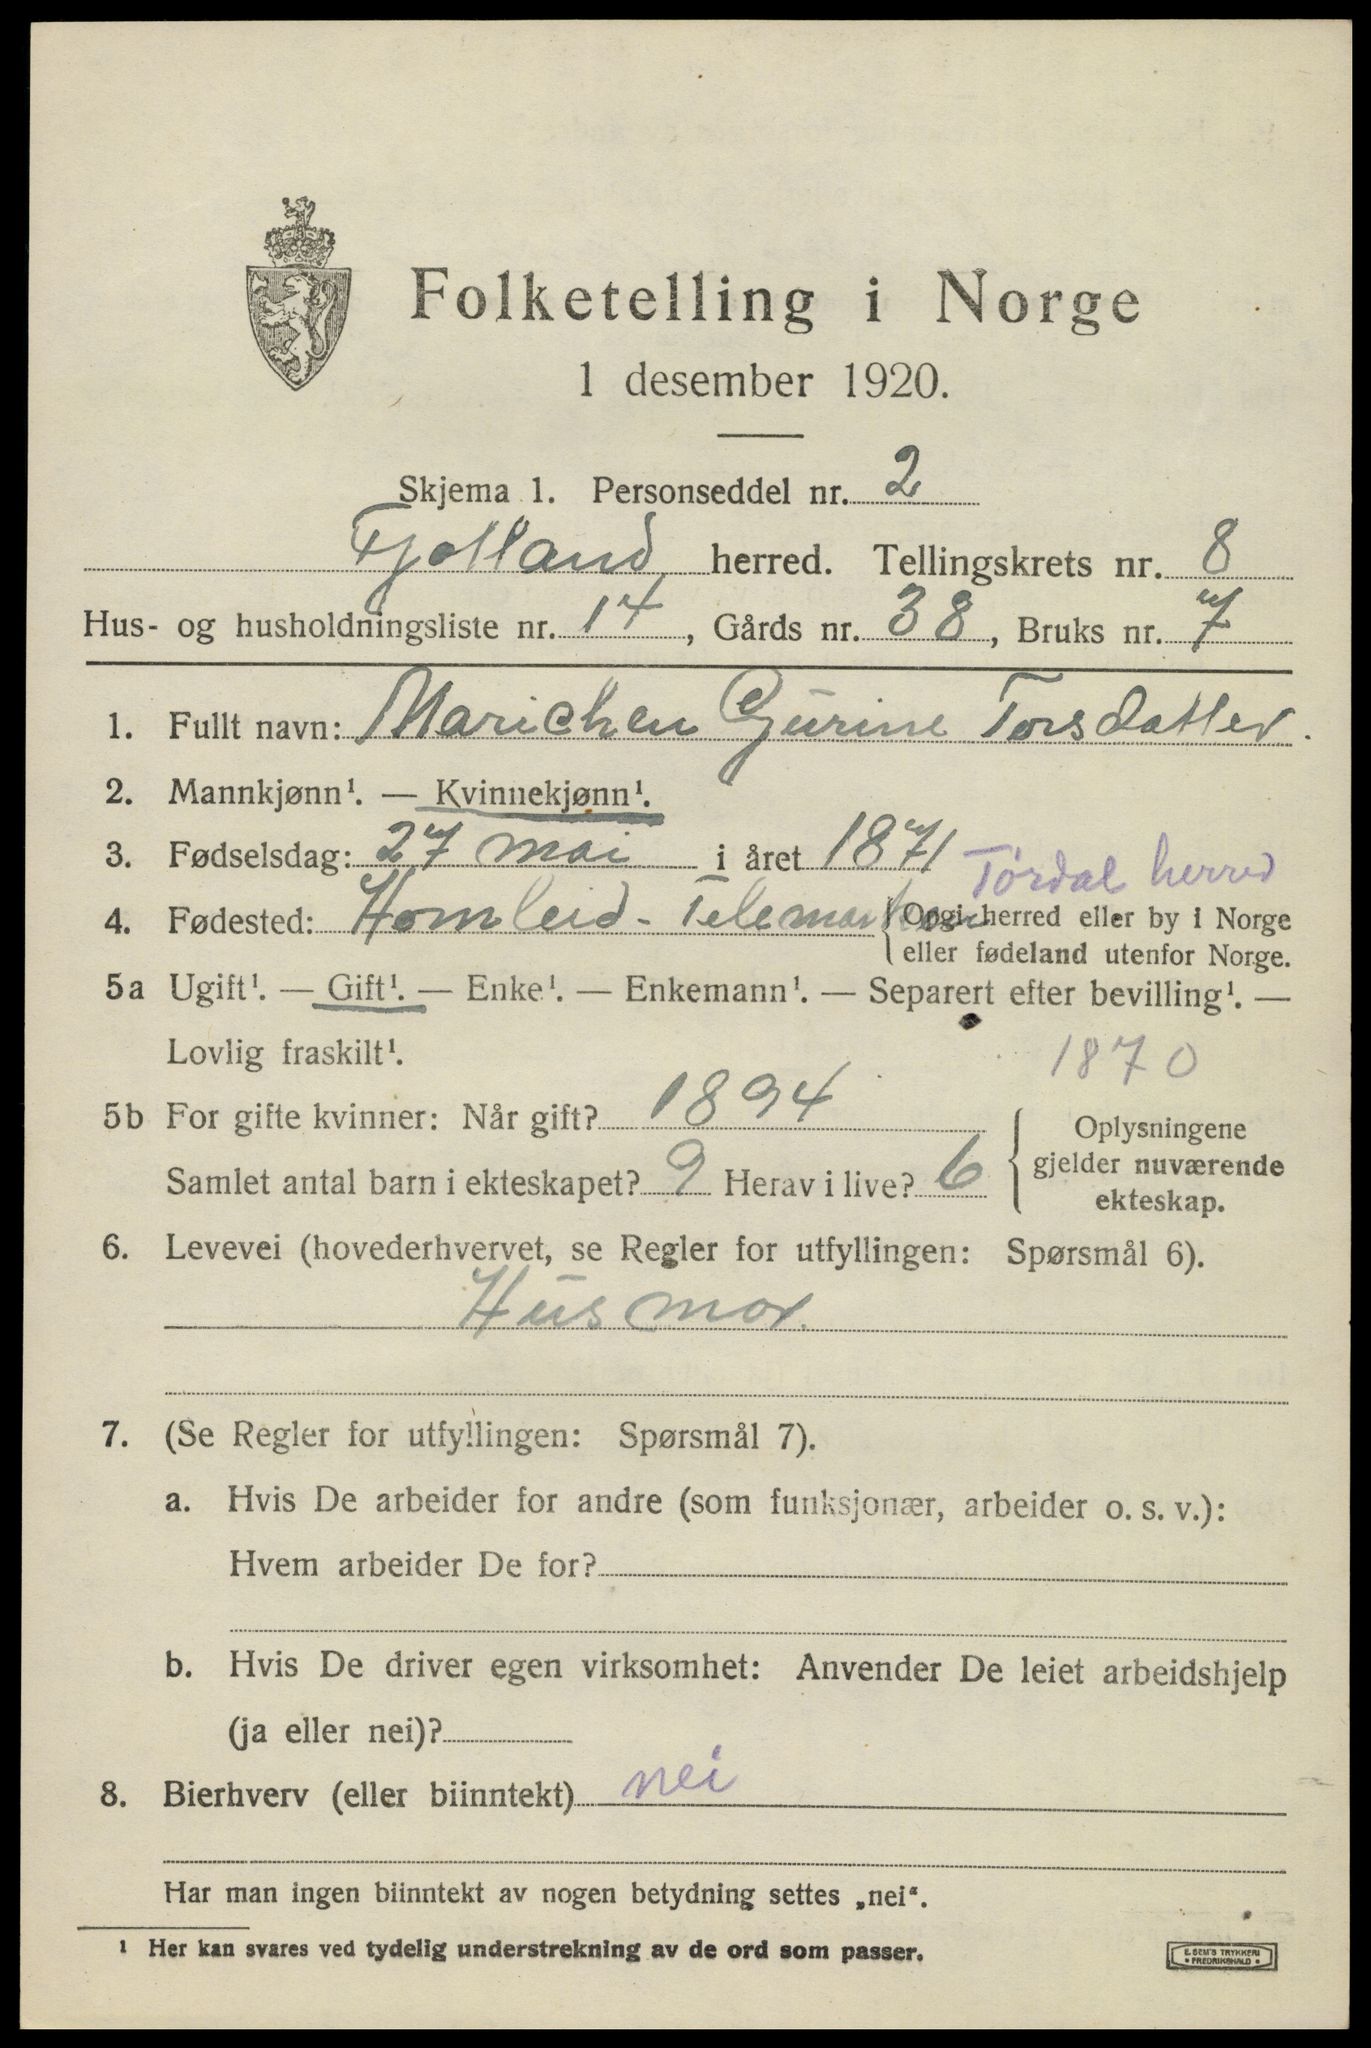 Folketelling i Norge
1 desember 1920.
Skjema 1. Personseddel nr. 2
Fjotland herred. Tellingskrets nr. 8
Hus- og husholdningsliste nr. 14, Gårds nr. 38, Bruks nr. 7
1. Fullt navn: Marichen Gurine Torsdatter.
2. Mannkjønn¹. — Kvinnekjønn¹.
3. Fødselsdag: 27 mai i året 1871
Tørdal herred
4. Fødested: Homleid - Telemarken { Opgi herred eller by i Norge
eller fødeland utenfor Norge.
5a Ugift¹. — Gift¹. — Enke¹. — Enkemann¹. — Separert efter bevilling¹. —
Lovlig fraskilt¹.
1870
5b For gifte kvinner: Når gift? 1894
Samlet antal barn i ekteskapet? 9 Herav i live? 6
Oplysningene
gjelder nuværende
ekteskap.
6. Levevei (hovederhvervet, se Regler for utfyllingen: Spørsmål 6).
Husmor.
7. (Se Regler for utfyllingen: Spørsmål 7).
a. Hvis De arbeider for andre (som funksjonær, arbeider o. s. v.):
Hvem arbeider De for?
b. Hvis De driver egen virksomhet: Anvender De leiet arbeidshjelp
(ja eller nei)?
8. Bierhverv (eller biinntekt) nei
Har man ingen biinntekt av nogen betydning settes „nei“.
¹ Her kan svares ved tydelig understrekning av de ord som passer.
E. SEM'S TRYKKERI
• FREDRIKSHALD •